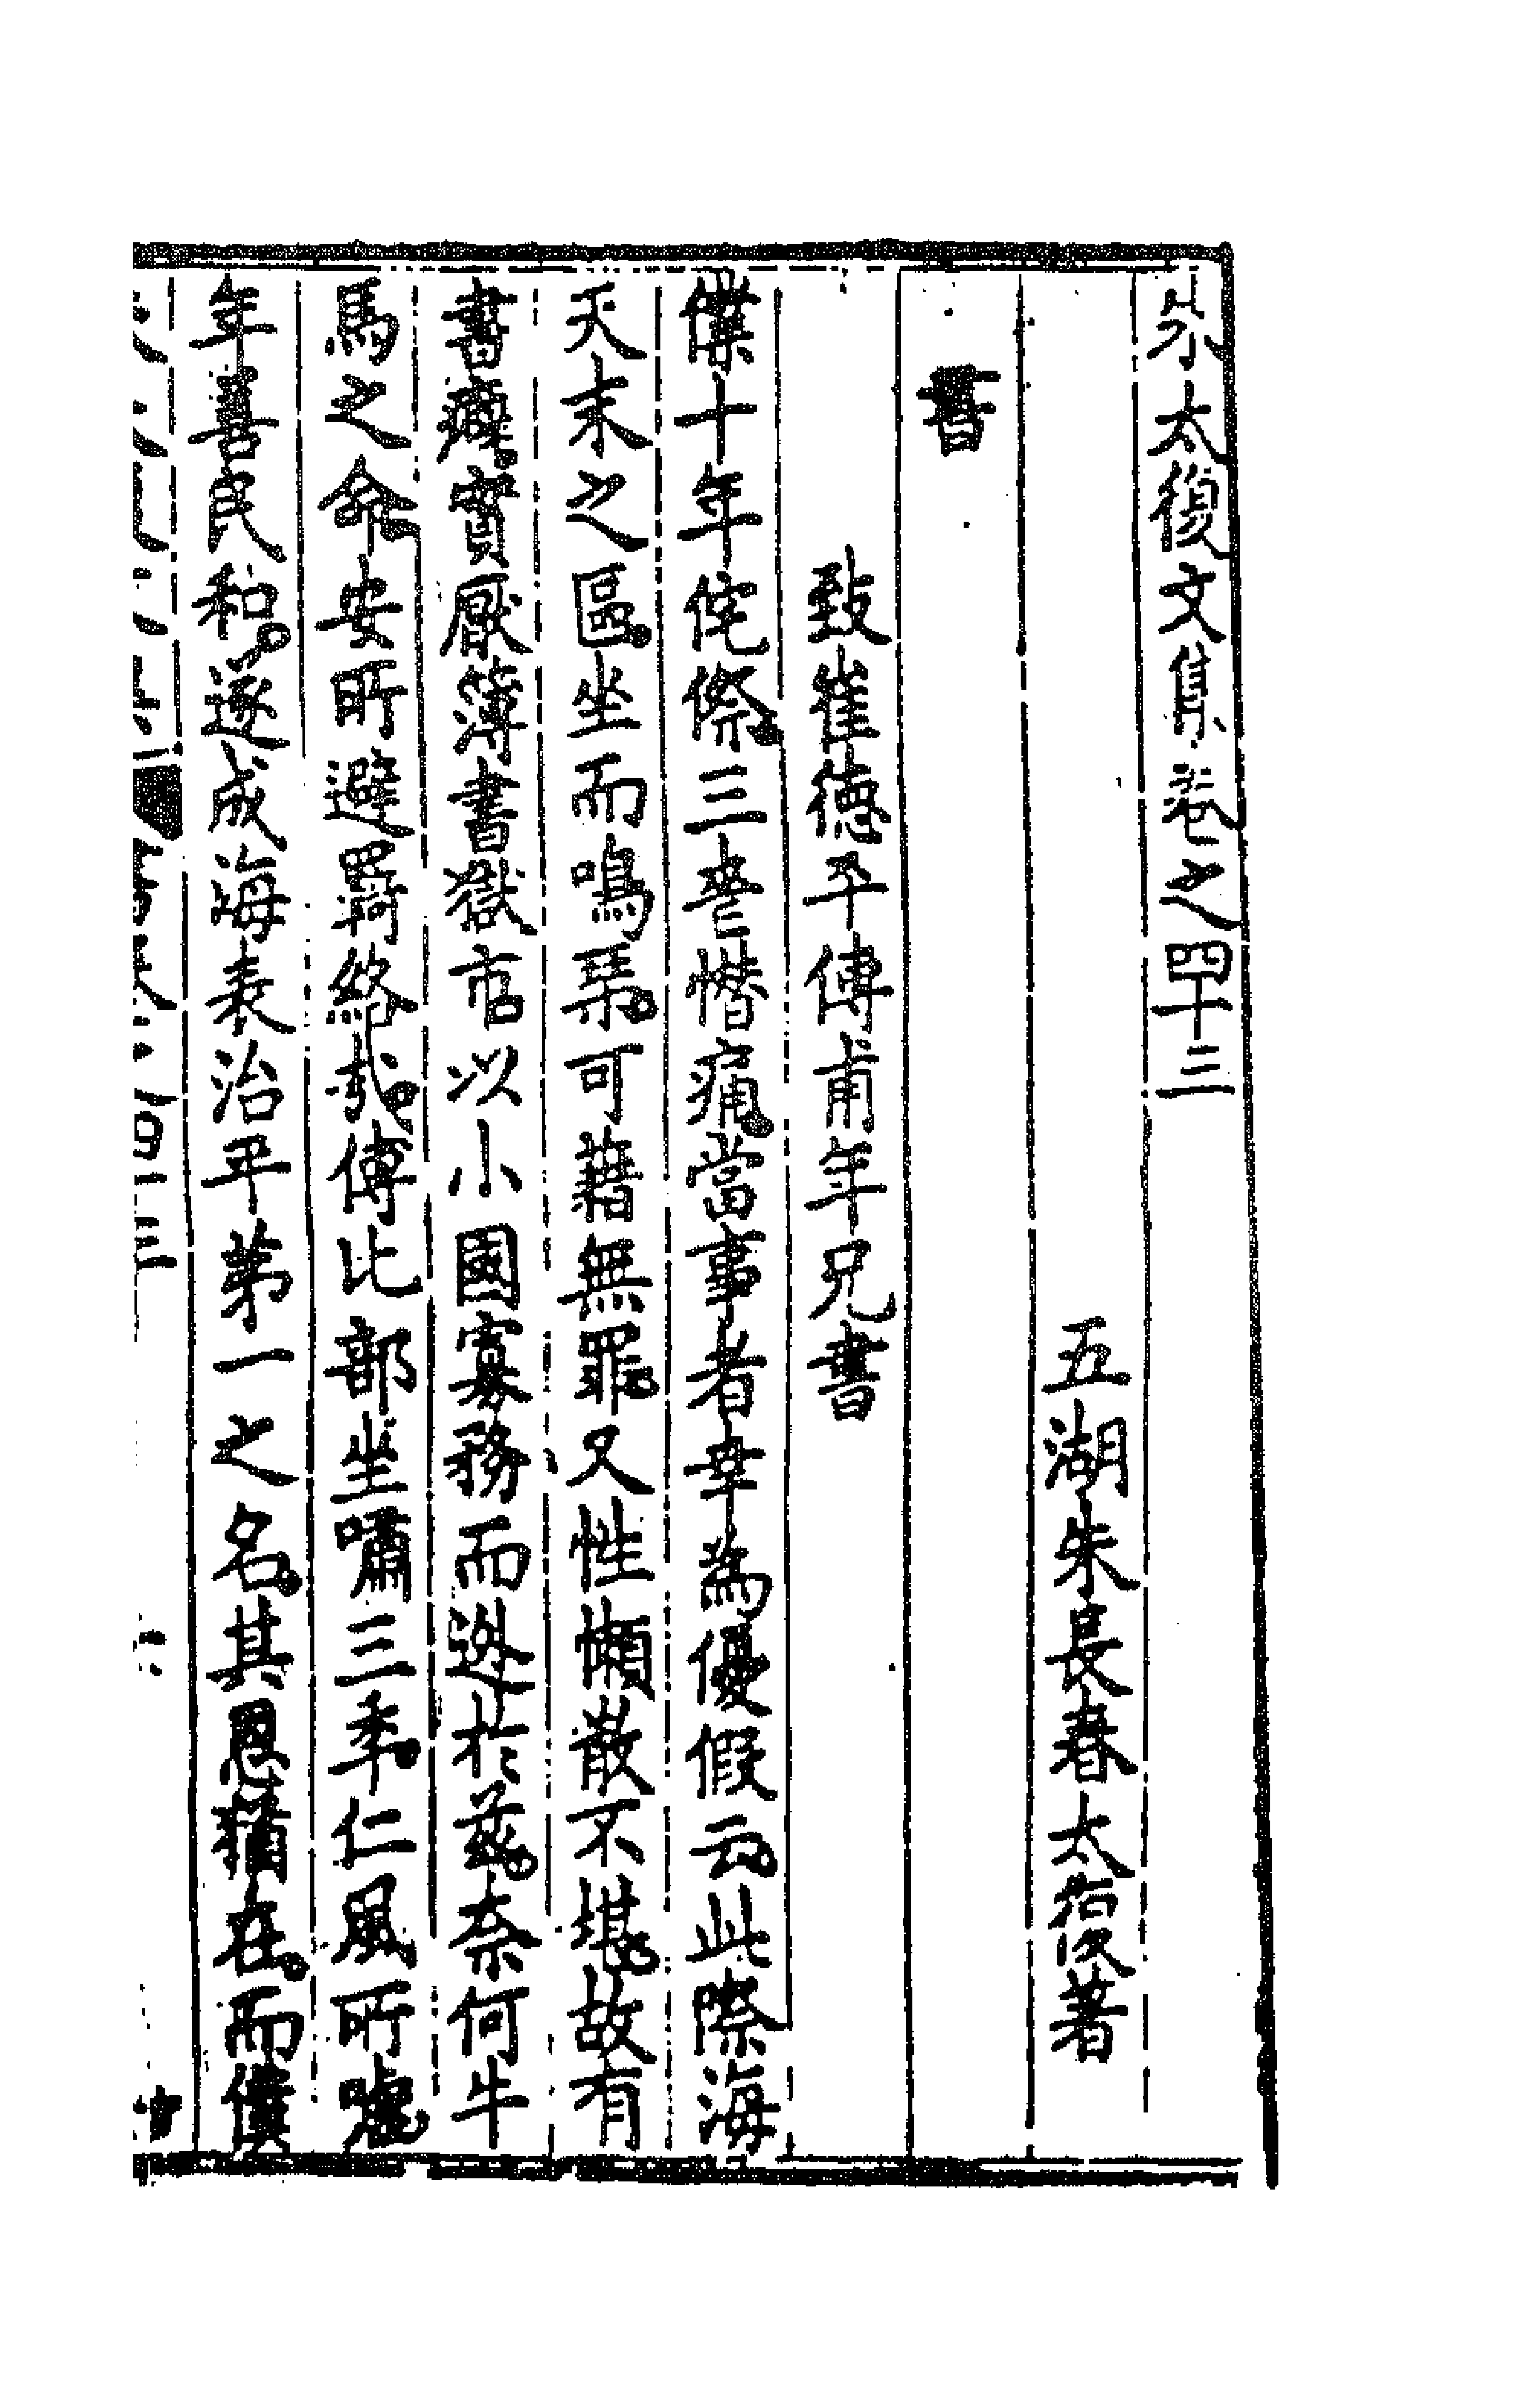 朱太復文集卷之四十三
五湖朱長春太復著
書
致崔德平傅甫年兄書
僕十年侘傺三喪慘痛當事者幸為優假云此際海
天末之區坐而鳴琴可藉無罪又性懶散不堪故有
書癖實厭簿書獄市以小國寡務而逃於茲奈何牛
馬之命安所避羇絡哉傅比部坐嘯三年仁風所噓
年善民和遂成海表治平第一之名其恩猶在而僕